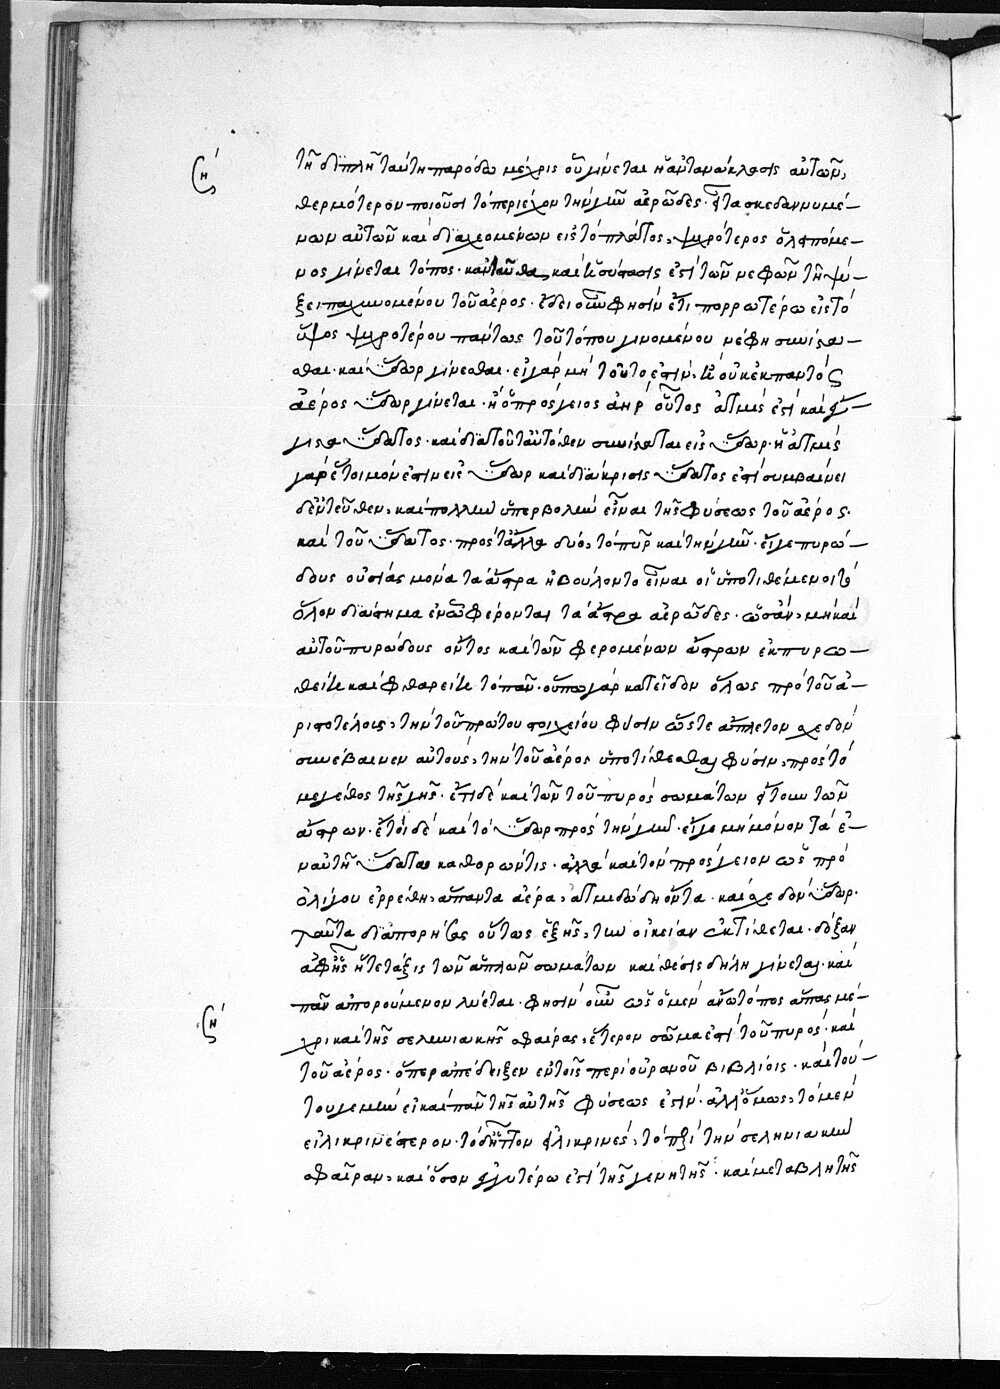 (η΄
τῇ διπλῇ ταύτῃ παρόδῳ μέχρις οὗ γίνεται ἡ ἀντανάκλασις αὐτῶν,
θερμότερον ποιοῦσι τὸ περιέχον τὴν γῆν ἀερῶδες· εἶτα σκεδαννυμέ-
νων αὐτῶν καὶ διαχεομένων εἰς τὸ πλάτος, ψυχρότερος ὁ λειπόμε-
νος γίνεται τόπος· κἀνταῦθα, καὶ ἡ σύστασις ἐστὶ τῶν νεφῶν τῇ ψύ-
ξει παχυνομένου τοῦ ἀέρος. ἔδει οὖν φησὶν ἔτι πορρωτέρω εἰς τὸ
ὕψος ψυχροτέρου πάντως τοῦ τόπου γινομένου νέφη συνίστα-
σθαι· καὶ ὕδωρ γίνεσθαι· εἰ γὰρ μὴ τοῦτο ἐστὶν, ἢ οὐκ ἐκ παντὸς
ἀέρος ὕδωρ γίνεται· ἢ ὁ πρόσγειος ἀὴρ οὗτος ἀτμίς ἐστὶ καὶ
ὕδατος· καὶ διὰ τοῦτ' αὐτόθεν συνίσταται εἰς ὕδωρ· ἡ ἀτμὶς
γὰρ ἕτοιμόν ἐστιν εἰς ὕδωρ καὶ διάκρισις ὕδατος ἐστί συμβαίνει
δ' ἐντεῦθεν, καὶ πολλὴν ὑπερβολὴν εἶναι τῆς φύσεως τοῦ ἀέρος·
καὶ τοῦ ὕδατος· πρὸς τἆλλα δυό, τὸ πῦρ καὶ τὴν γῆν· εἴγε πυρώ-
δους οὐσίας μόνα τὰ ἄστρα ἠβούλοντο εἶναι οἱ ὑποτιθέμενοι τὸ
ὅλον διάστημα ἐν ᾧ φέρονται τὰ ἄστρα ἀερῶδες· ὡς ἂν, μὴ καὶ
αὐτοῦ πυρώδους ὄντος καὶ τῶν φερομένων ἄστρων ἐκπυρω-
θείη καὶ φθαρείη τὸ πᾶν· οὔπω γὰρ κατεῖδον ὅλως πρὸ τοῦ ἀ-
ριστοτέλους, τὴν τοῦ πρώτου στοιχείου φύσιν ὥστε ἄπλετον σχεδὸν
συνέβαινεν αὐτοὺς, τὴν τοῦ ἀέρος ὑποτίθεσθαι φύσιν, πρὸς τὸ
μέγεθος τῆς γῆς· ἔτι δὲ καὶ τῶν τοῦ πυρὸς σωμάτων ἤτοι τῶν
ἄστρων· ἔτι δὲ καὶ τὸ ὕδωρ πρὸς τὴν γῆν· εἴγε μὴ μόνον τὰ ἐ-
ν αὐτῇ ὕδατα καθορῶντες· ἀλλὰ καὶ τὸν πρόσγειον ὡς πρὸ
ὀλίγου ἐρρέθη, ἅπαντα ἀέρα, ἀτμιδώδη ὄντα· καὶ σχεδὸν ὕδωρ.
ταῦτα διαπορήσας οὕτως ἑξῆς, τὴν οἰκείαν ἐκτίθεται· δόξαν
ἀφ' ἧς ἥ τε τάξις τῶν ἁπλῶν σωμάτων καὶ θέσις δήλη γίνεται· καὶ
(η΄
πᾶν ἀπορούμενον λύεται· φησὶν οὖν ὡς ὁ μὲν ἄνω τόπος ἅπας μέ-
χρι καὶ τῆς σεληνιακῆς σφαίρας, ἕτερον σῶμα ἐστὶ τοῦ πυρὸς· καὶ
τοῦ ἀέρος· ὅπερ ἀπέδειξεν ἐν τοῖς περὶ οὐρανοῦ βιβλίοις· καὶ τού-
του γε μὴν εἰ καὶ πᾶν τῆς αὐτῆς φύσεως ἐστὶν· ἀλλ' ὅμως, τὸ μὲν
εἰλικρινέστερον· τὸ δ' ἧττον εἰλικρινές, τὸ περὶ τὴν σεληνιακὴν
σφαῖραν, καὶ ὅσον ἐγγυτέρω ἐστὶ τῆς γενητῆς· καὶ μεταβλητῆς